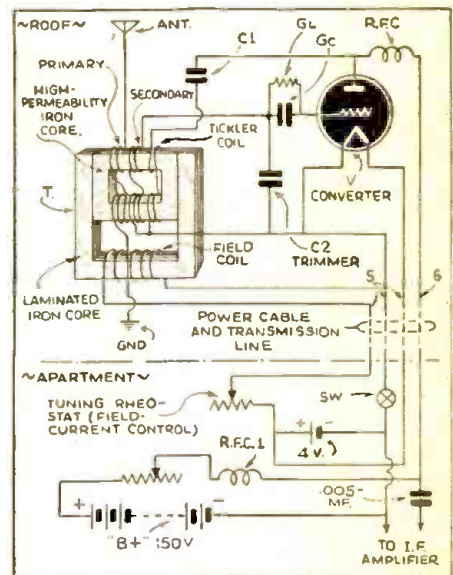 ~ROOF~
ANT.
C1
GL
GC
R.F.C.
PRIMARY
HIGH-
PERMEABILITY
IRON
CORE.
SECONDARY
TICKLER
COIL
T.
V
CONVERTER
FIELD
COIL
C2
TRIMMER
5
6
LAMINATED
IRON CORE
GND
POWER CABLE
AND TRANSMISSION
LINE
~APARTMENT~
TUNING RHEO-
STAT (FIELD-
CURRENT CONTROL)
SW
+ -
4 V.
R.F.C.1
.005-
MF.
+ -
"B+" 150V
TO I.F.
AMPLIFIER